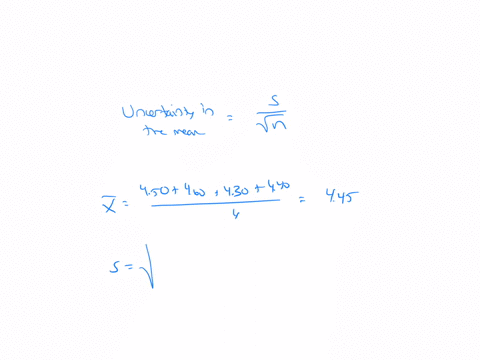 Uncertainty in the mean = s / √n
x̄ = (4.50 + 4.60 + 4.30 + 4.40) / 4 = 4.45
s = √